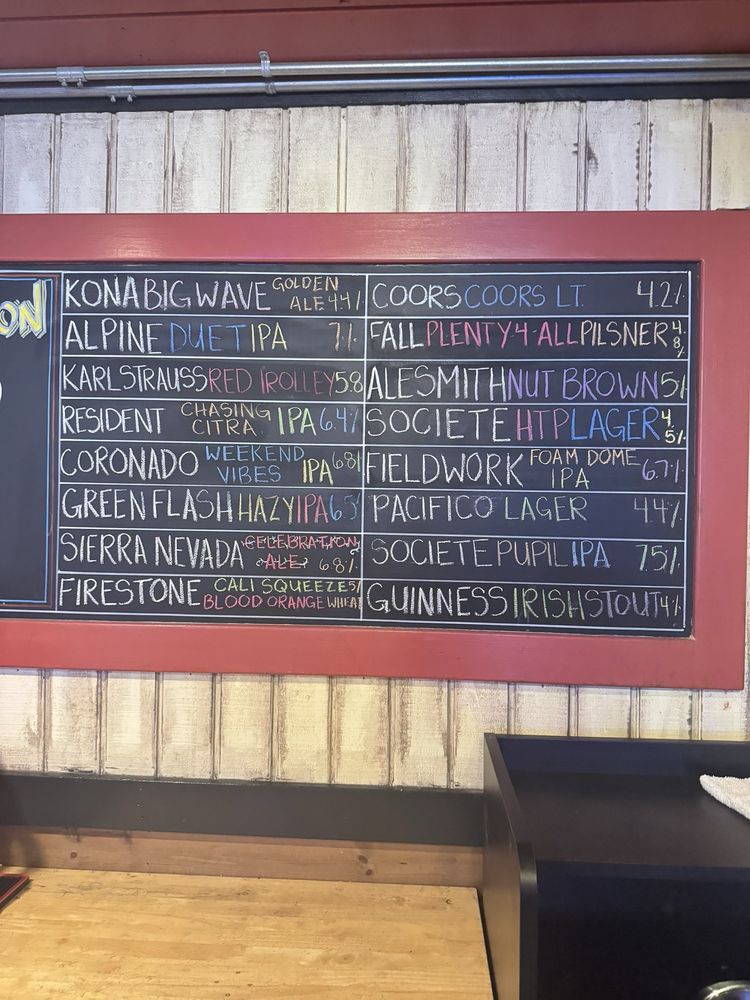 ON
KONA BIG WAVE GOLDEN
ALE 4.4%
ALPINE DUET IPA 7%
KARL STRAUSS RED TROLLEY 5.8
RESIDENT CHASING
CITRA IPA 6.4%
CORONADO WEEKEND
VIBES IPA 6.8%
GREEN FLASH HAZY IPA 6.5
SIERRA NEVADA CELEBRATION
ALE 6.8%
FIRESTONE CALI SQUEEZE 5%
BLOOD ORANGE WHEAT
COORS COORS LT. 4.2%
FALL PLENTY 4 ALL PILSNER 4.8%
ALESMITH NUT BROWN 5%
SOCIETE HTP LAGER 4.5%
FIELDWORK FOAM DOME
IPA 6.7%
PACIFICO LAGER 4.4%
SOCIETE PUPIL IPA 7.5%
GUINNESS IRISH STOUT 4%